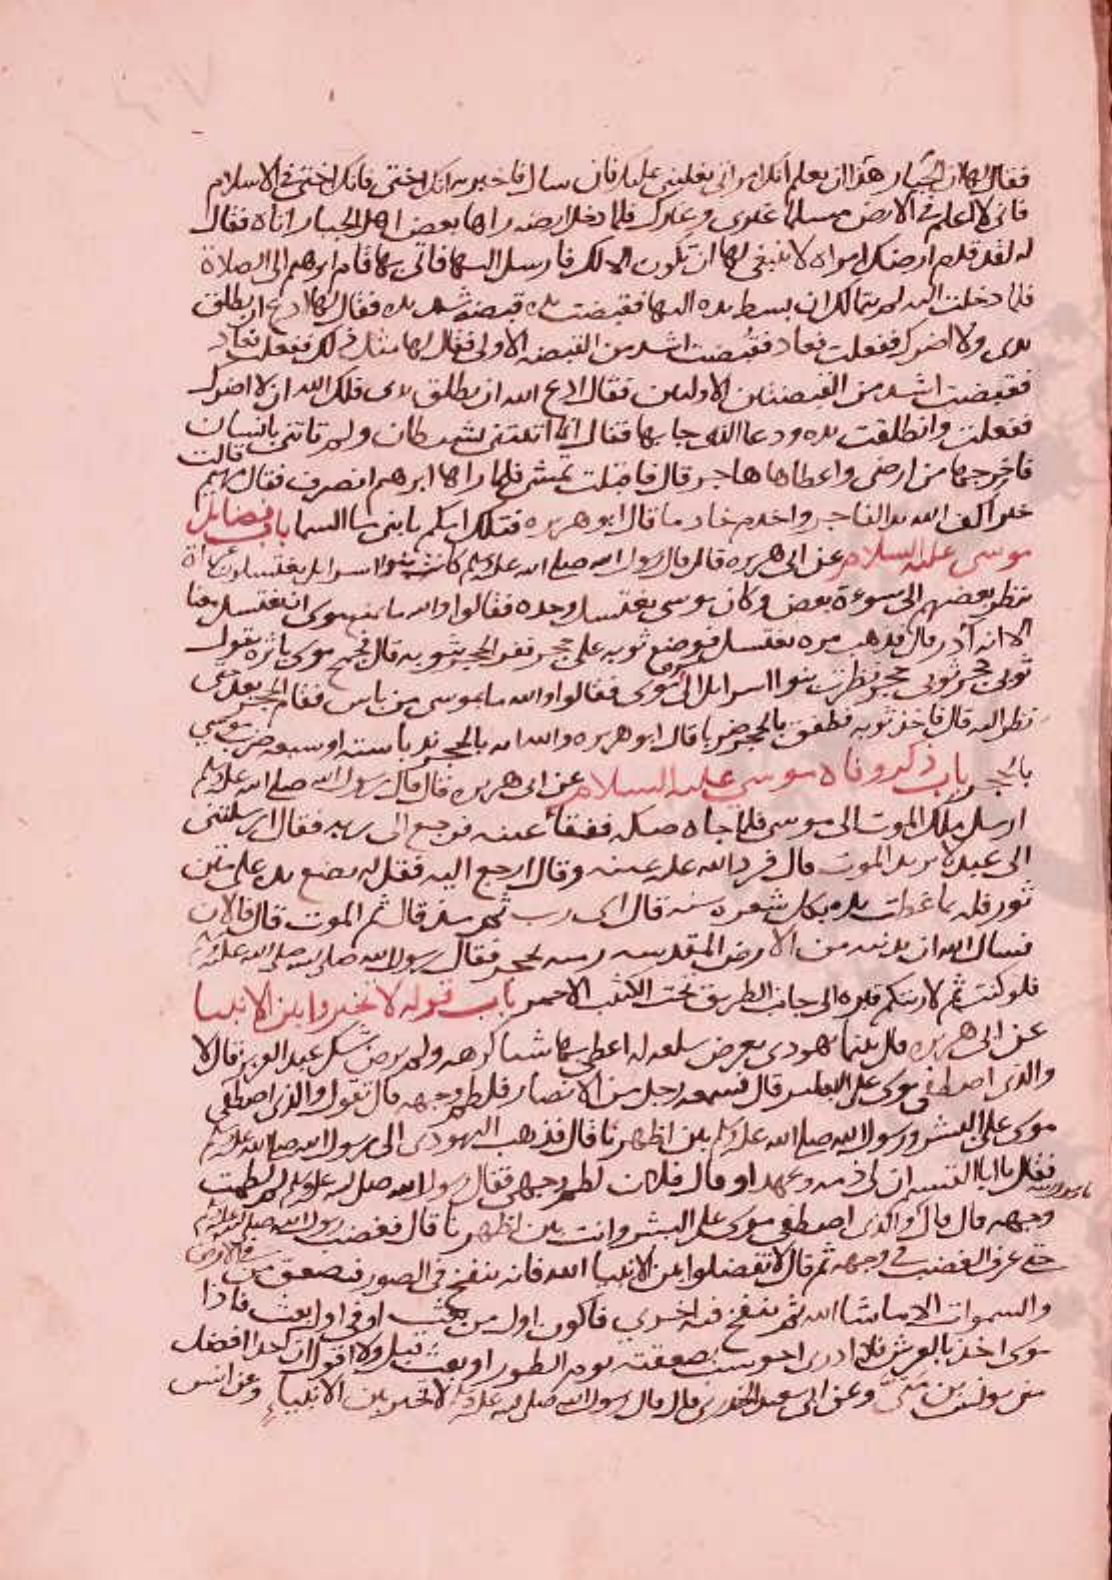 فقال لها ان الجبار هذا ان يعلم انك امراتي يغلبني عليك فان سالك فاخبريه انك اختي فانك اختي في الاسلام
فاني لا اعلم في الارض مسلما غيري وغيرك فلما دخل ارضه راها بعض اهل الجبار اتاه فقال
له لقد قدم ارضك امراه لا ينبغي لها ان تكون الا لك فارسل اليها فاتي بها فقام ابرهيم الى الصلاة
فلما دخلت اليه لم يتمالك ان بسط يده اليها فقبضت يده قبضه شديده فقال لها ادع ان يطلق
يدي ولا اضرك ففعلت فعاد فقبضت اشد من القبضه الاولى فقال لها مثل ذلك ففعلت فعاد
فقبضت اشد من القبضتين الاوليين فقال ادع الله ان يطلق يدي فلك الله ان لا اضرك
ففعلت وانطلقت يده ودعا الذي جا بها فقال انما اتيتني بشيطان ولم تاتني بانسان
فاخرجها من ارضي واعطاها هاجر قال فاقبلت تمشي فلما راها ابرهم انصرف فقال مهيم قالت
خيرا كف الله يد الفاجر واخدم خادما قال ابو هريره فتلك امكم يا بني ما السما باب فضايل
موسى عليه السلام عن ابي هريره قال قال رسول الله صلى الله عليه وسلم كانت بنوا اسرايل يغتسلون عراة
ينظر بعضهم الى سوءة بعض وكان موسى يغتسل وحده فقالوا والله ما يمنع موسى ان يغتسل معنا
الا انه آدر قال فذهب مره يغتسل فوضع ثوبه على حجر ففر الحجر بثوبه قال فجمح موسى باثره يقول
ثوبي حجر ثوبي حجر حتى نظرت بنوا اسرايل الى سوءة موسى فقالوا والله ما بموسى من باس فقام الحجر بعد حتى
نظر اليه قال فاخذ ثوبه فطفق بالحجر ضربا قال ابو هريره والله انه بالحجر ندبا ستة او سبعه ضرب موسى
بالحجر باب ذكر وفاه موسى عليه السلام عن ابي هريره قال قال رسول الله صلى الله عليه وسلم
ارسل ملك الموت الى موسى فلما جاه صكه ففقأ عينه فرجع الى ربه فقال ارسلتني
الى عبد لا يريد الموت قال فرد الله عليه عينه وقال ارجع اليه فقل له يضع يده على متن
ثور فله بما غطت يده بكل شعره سنه قال اي رب ثم مه قال ثم الموت قال فالان
فسال الله ان يدنيه من الارض المقدسه رميه بحجر فقال رسول الله صلى الله عليه وسلم
فلو كنت ثم لاريتكم قبره الى جانب الطريق تحت الكثيب الاحمر باب قوله لا تخيروا بين الانبيا
عن ابي هريره قال بينما يهودي يعرض سلعه له اعطي بها شيا كرهه ولم يرضه شك عبد العزيز قال لا
والذي اصطفى موسى على البشر قال فسمعه رجل من الانصار فلطم وجهه قال تقول والذي اصطفى
موسى على البشر ورسول الله صلى الله عليه وسلم بين اظهرنا قال فذهب اليهودي الى رسول الله صلى الله عليه وسلم
فقال يا ابا القسم ان لي ذمه وعهدا وقال فلان لطم وجهي فقال رسول الله صلى الله عليه وسلم لم لطمت
وجهه قال قال يارسول الله والذي اصطفى موسى على البشر وانت بين اظهرنا قال فغضب رسول الله صلى الله عليه وسلم
حتى عرف الغضب في وجهه ثم قال لا تفضلوا بين الانبيا الله فانه ينفخ في الصور فيصعق من في الارض
والسموات الا ما شا الله ثم ينفخ فيه اخرى فاكون اول من بعث او في اول بعث فاذا
موسى اخذ بالعرش فلا ادرى احوسب بصعقته يوم الطور او بعث قبلي ولا اقول ان احدا افضل
من يونس بن متى وعن ابي سعيد الخدري قال قال رسول الله صلى الله عليه وسلم لا تخيروا بين الانبياء وعن انس